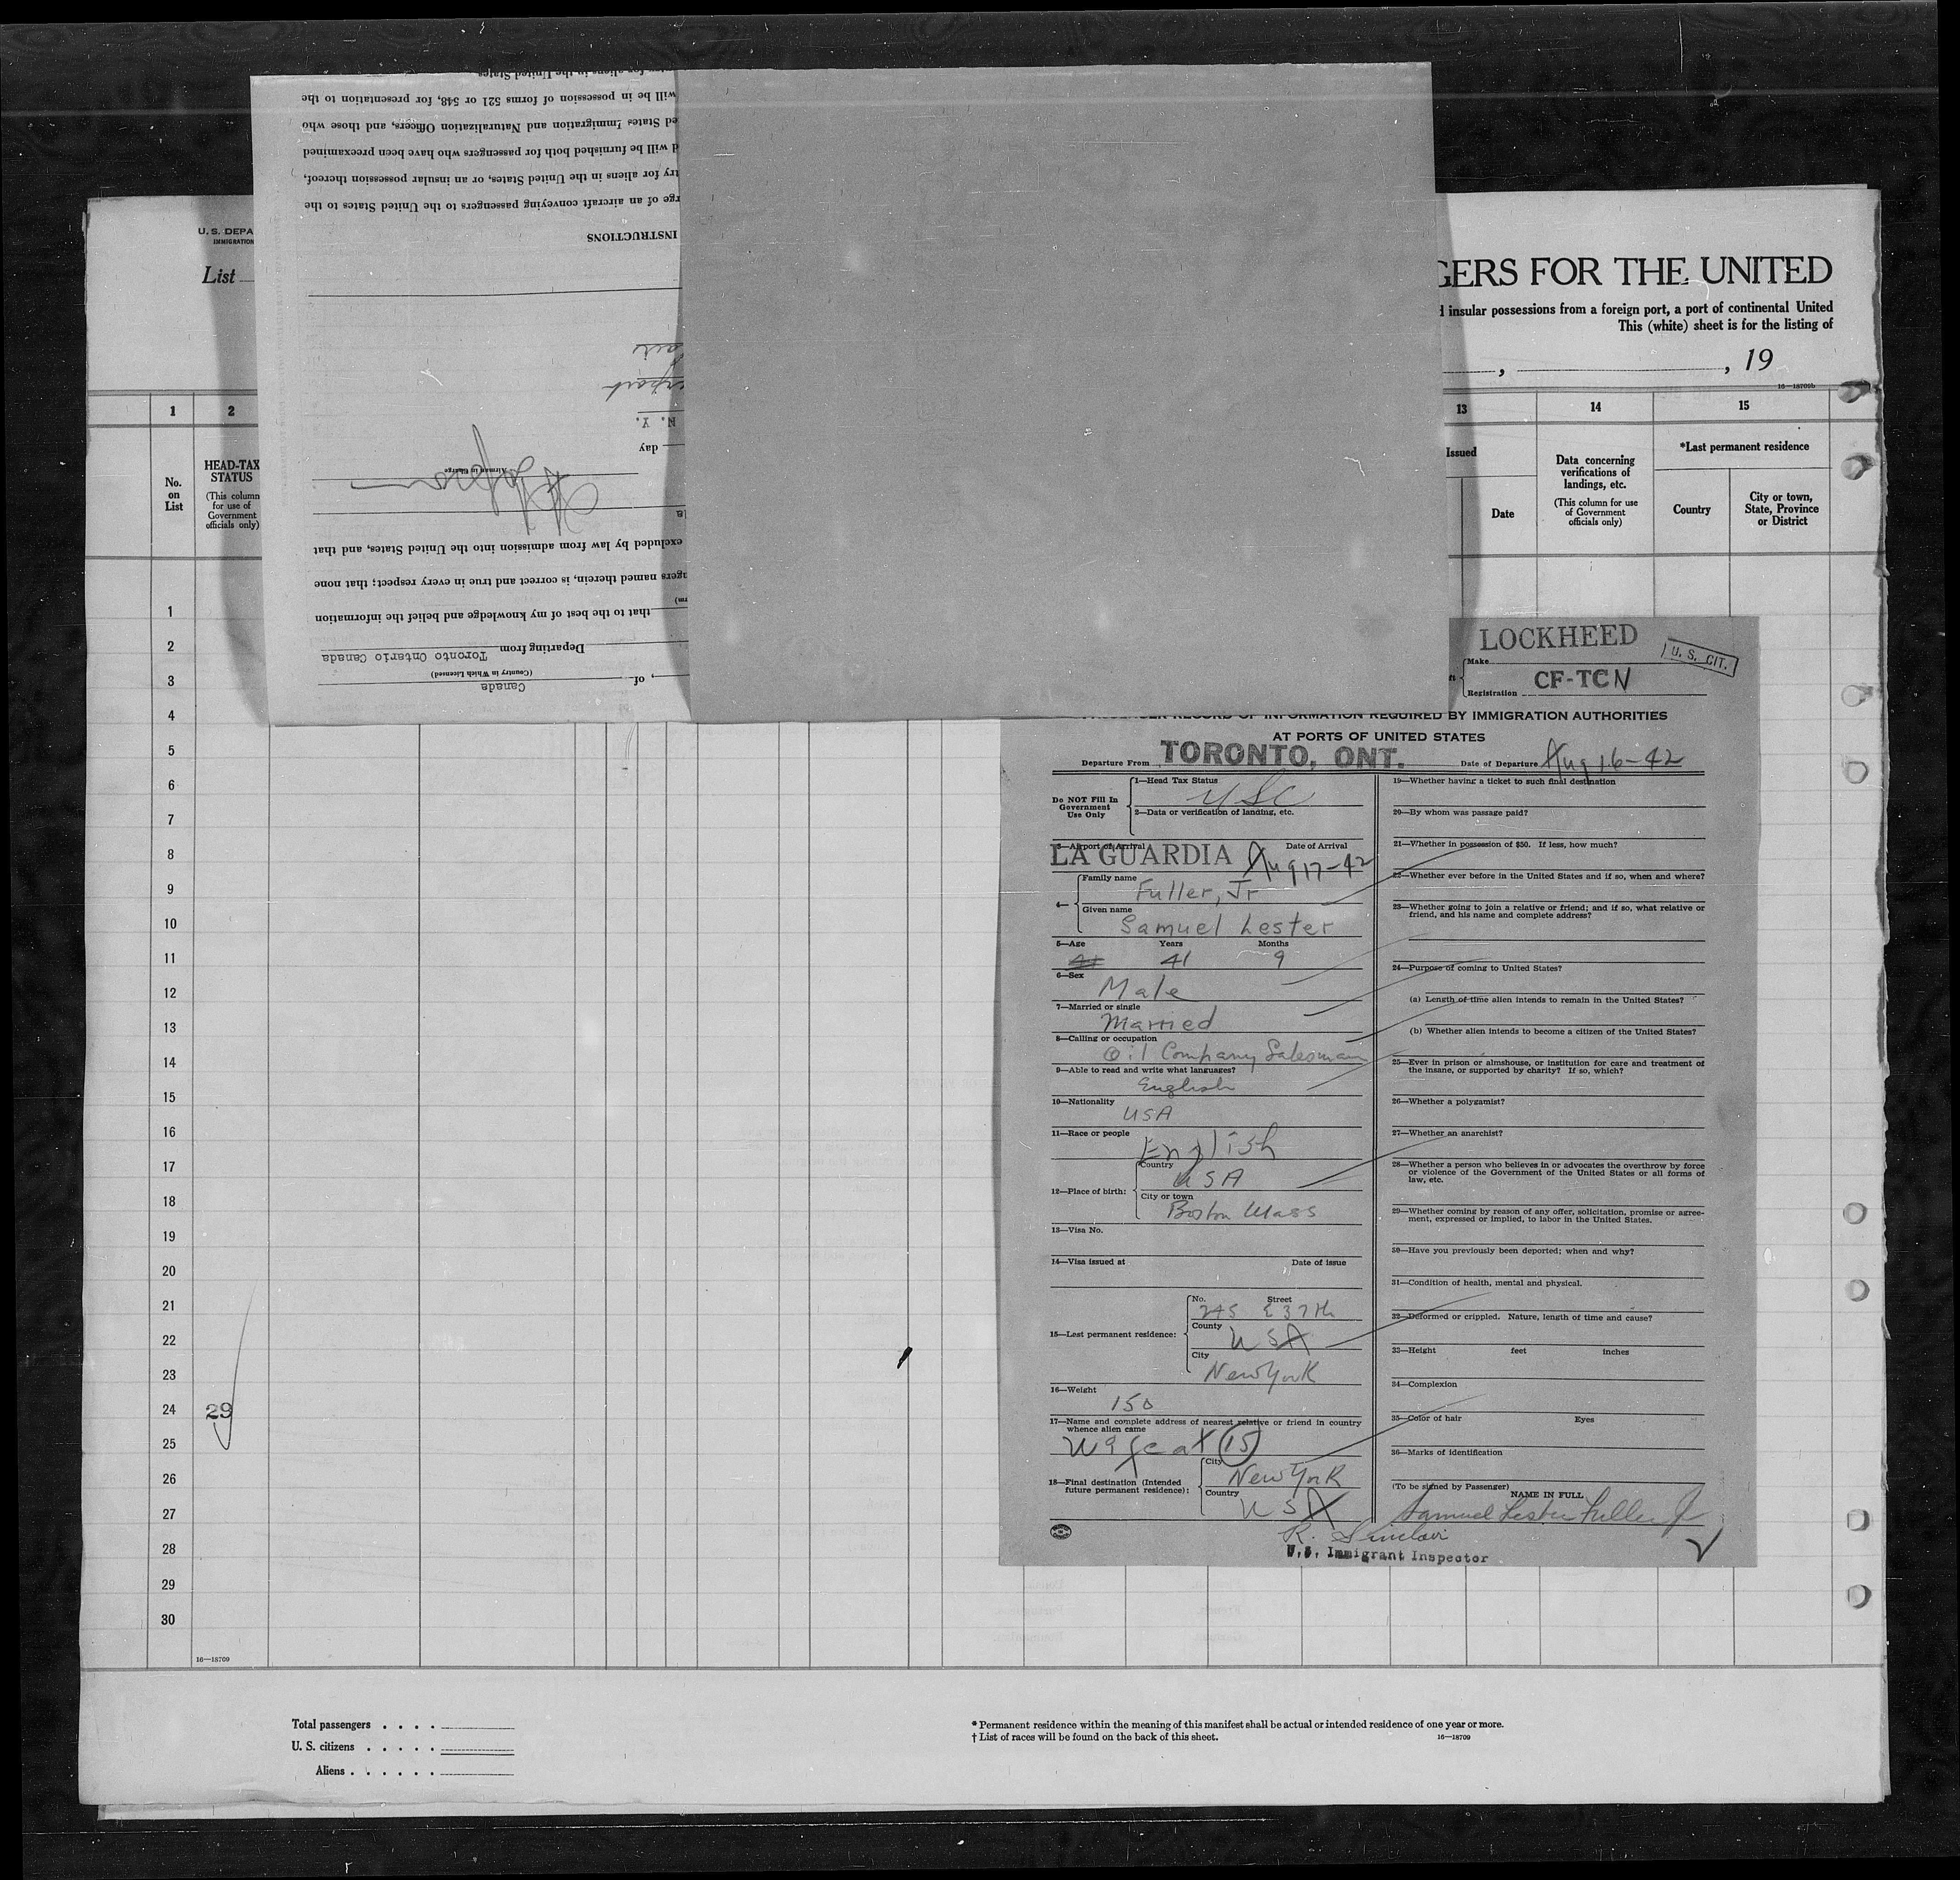 U. S. DEPA
IMMIGRATION
List
GERS FOR THE UNITED
insular possessions from a foreign port, a port of continental United
This (white) sheet is for the listing of
, , 19
16—18709b
1
2
13
14
15
No.
on
List
HEAD-TAX
STATUS
(This column
for use of
Government
officials only)
Issued
Date
Data concerning
verifications of
landings, etc.
(This column for use
of Government
officials only)
*Last permanent residence
Country
City or town,
State, Province
or District
Canada
(Country in Which Licensed)
, of
Departing from Toronto Ontario Canada
that to the best of my knowledge and belief the information
gers named therein, is correct and true in every respect; that none
excluded by law from admission into the United States, and that
Airman in Charge
day
N. Y.
INSTRUCTIONS
rge of an aircraft conveying passengers to the United States to the
try for aliens in the United States, or an insular possession thereof,
d will be furnished both for passengers who have been preexamined
ed States Immigration and Naturalization Officers, and those who
will be in possession of forms 521 or 548, for presentation to the
for aliens in the United States
1
2
3
4
5
6
7
8
9
10
11
12
13
14
15
16
17
18
19
20
21
22
23
24
29
25
26
27
28
29
30
16—18709
LOCKHEED
Make
U. S. CIT.
CF-TCN
Registration
RECORD OF INFORMATION REQUIRED BY IMMIGRATION AUTHORITIES
AT PORTS OF UNITED STATES
Departure From TORONTO, ONT. Date of Departure Aug 16-42
Do NOT Fill In
Government
Use Only
1—Head Tax Status
USC
2—Data or verification of landing, etc.
3—Airport of Arrival Date of Arrival
LA GUARDIA Aug 17-42
4—
Family name
Fuller, Jr
Given name
Samuel Lester
5—Age Years Months
41 41 9
6—Sex
Male
7—Married or single
Married
8—Calling or occupation
Oil Company Salesman
9—Able to read and write what languages?
English
10—Nationality
USA
11—Race or people
English
12—Place of birth:
Country
USA
City or town
Boston Mass
13—Visa No.
14—Visa issued at Date of issue
15—Last permanent residence:
No. Street
245 E 37th
County
USA
City
New York
16—Weight
150
17—Name and complete address of nearest relative or friend in country
whence alien came
15
18—Final destination (Intended
future permanent residence):
City
New York
Country
USA
19—Whether having a ticket to such final destination
20—By whom was passage paid?
21—Whether in possession of $50. If less, how much?
22—Whether ever before in the United States and if so, when and where?
23—Whether going to join a relative or friend; and if so, what relative or
friend, and his name and complete address?
24—Purpose of coming to United States?
(a) Length of time alien intends to remain in the United States?
(b) Whether alien intends to become a citizen of the United States?
25—Ever in prison or almshouse, or institution for care and treatment of
the insane, or supported by charity? If so, which?
26—Whether a polygamist?
27—Whether an anarchist?
28—Whether a person who believes in or advocates the overthrow by force
or violence of the Government of the United States or all forms of
law, etc.
29—Whether coming by reason of any offer, solicitation, promise or agree-
ment, expressed or implied, to labor in the United States.
30—Have you previously been deported; when and why?
31—Condition of health, mental and physical.
32—Deformed or crippled. Nature, length of time and cause?
33—Height feet inches
34—Complexion
35—Color of hair Eyes
36—Marks of identification
(To be signed by Passenger)
NAME IN FULL
Samuel Lester Fuller Jr
R. Sinclair
U.S. Immigrant Inspector
Total passengers . . . .
U. S. citizens . . . . .
Aliens . . . . . .
* Permanent residence within the meaning of this manifest shall be actual or intended residence of one year or more.
† List of races will be found on the back of this sheet.
16—18709